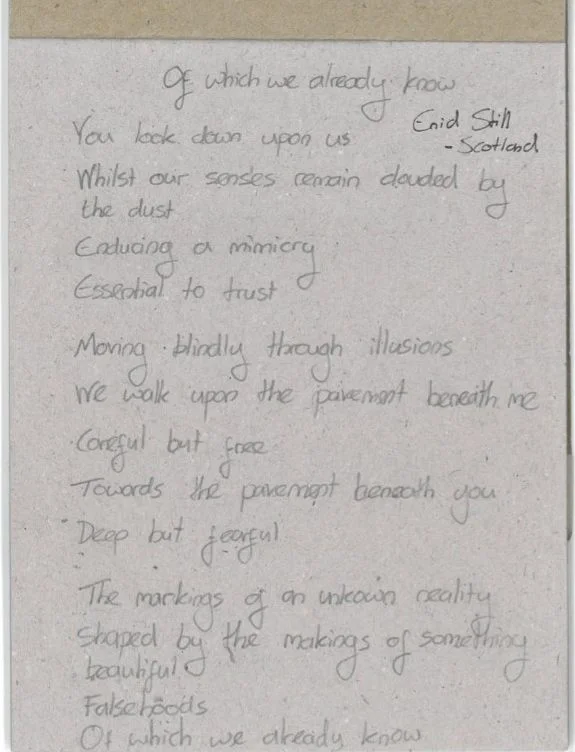 Of which we already know
Enid Still
- Scotland
You look down upon us
Whilst our senses remain clouded by
the dust
Enducing a mimicry
Essential to trust
Moving blindly through illusions
We walk upon the pavement beneath me
Careful but free
Towards the pavement beneath you
Deep but fearful
The markings of an unkown reality
Shaped by the makings of something
beautiful
Falsehoods
Of which we already know